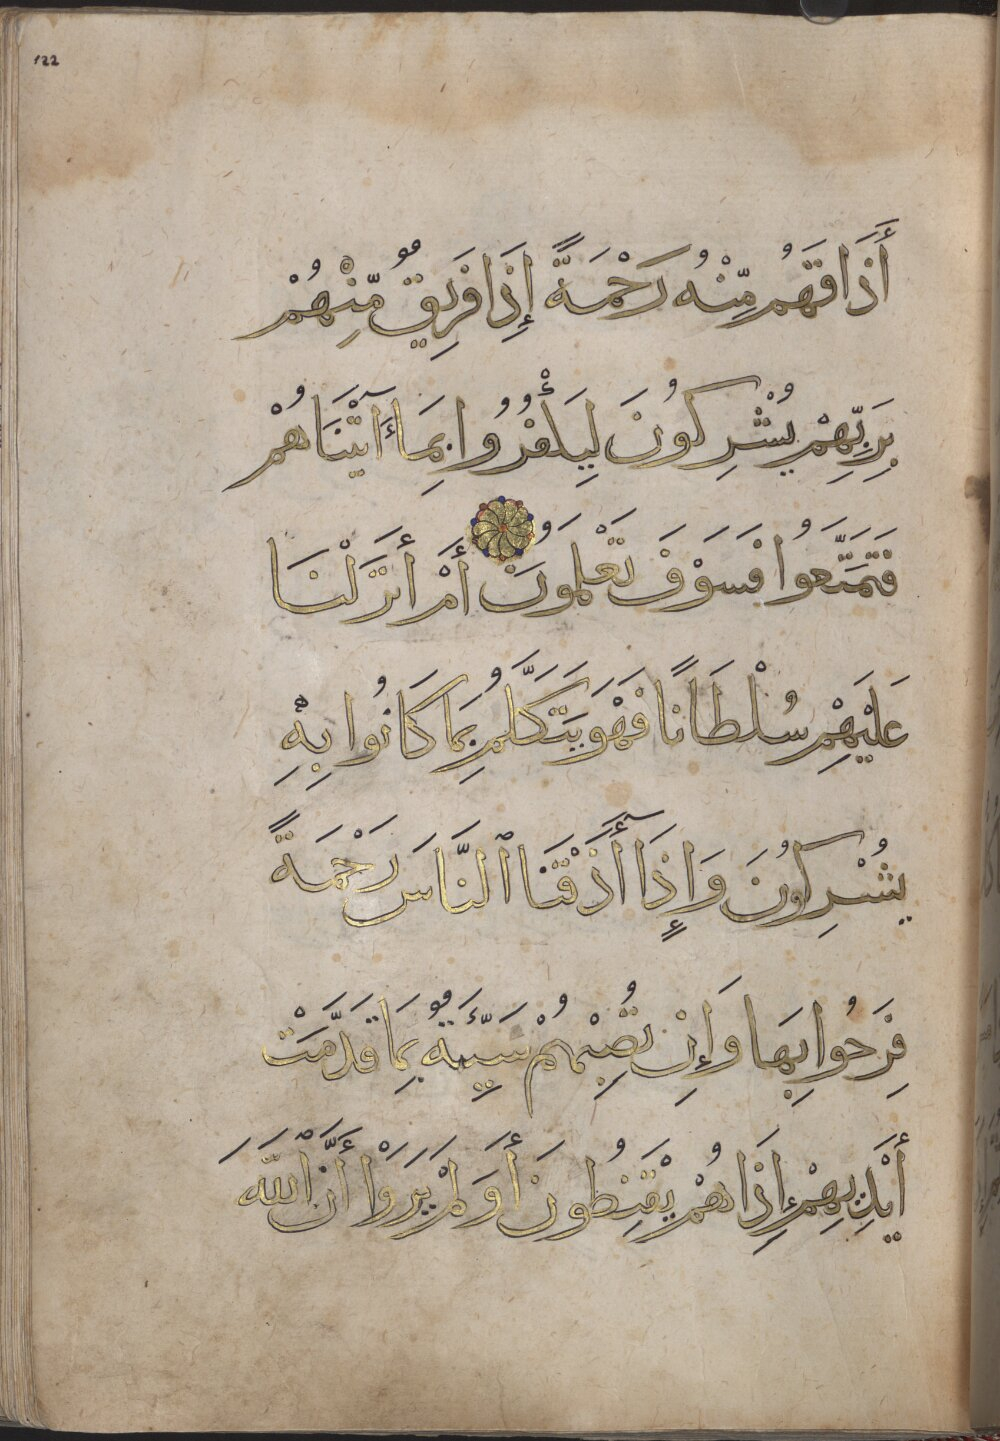 122
أَذَاقَهُم مِّنْهُ رَحْمَةً إِذَا فَرِيقٌ مِّنْهُمْ
بِرَبِّهِمْ يُشْرِكُونَ لِيَكْفُرُوا بِمَا آتَيْنَاهُمْ
فَتَمَتَّعُوا فَسَوْفَ تَعْلَمُونَ أَمْ أَنزَلْنَا
عَلَيْهِمْ سُلْطَانًا فَهُوَ يَتَكَلَّمُ بِمَا كَانُوا بِهِ
يُشْرِكُونَ وَإِذَا أَذَقْنَا النَّاسَ رَحْمَةً
فَرِحُوا بِهَا وَإِن تُصِبْهُمْ سَيِّئَةٌ بِمَا قَدَّمَتْ
أَيْدِيهِمْ إِذَا هُمْ يَقْنَطُونَ أَوَلَمْ يَرَوْا أَنَّ اللَّهَ